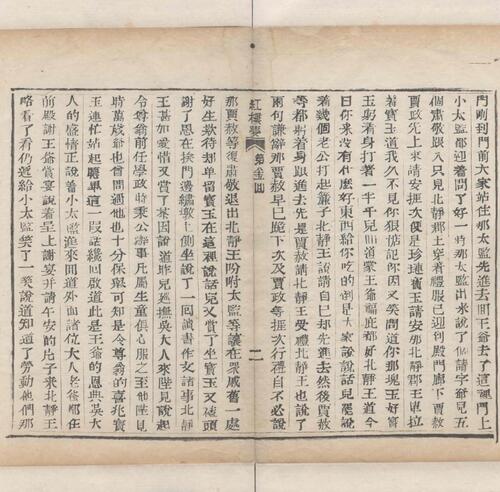 門剛到門前大家站住那太監先進去回王爺去了這裡門上
小太監都迎着問了好一時那太監出來說了個請字爺兒五
個肅敬跟入只見北靜郡王穿着禮服已迎到殿門廊下賈赦
賈政先上來請安挨次便是珍璉寶玉請安那北靜郡王單拉
着寶玉道我久不見你狠惦記你因又笑問道你那塊玉好寶
玉躬着身打着一半千兒回道蒙王爺福庇都好北靜王道今
日你來沒有什麽好東西給你吃的倒是大家說說話兒罷說
着幾個老公打起簾子北靜王說請自己却先進去然後賈赦
等都躬着身跟進去先是賈赦請北靜王受禮北靜王也說了
兩句謙辭那賈赦早已跪下次及賈政等挨次行禮自不必說
紅樓夢 第全回 二
那賈赦等復肅敬退出北靜王吩咐太監等讓在衆戚舊一處
好生欵待却單留寶玉在這裡說話兒又賞了坐寶玉又磕頭
謝了恩在挨門邊繡墩上側坐說了一回讀書作文諸事北靜
王甚加愛惜又賞了茶因說道昨兒巡撫吳大人來陛見說起
令尊翁前任學政時秉公辦事凡屬生童俱心服之至他陛見
時萬歲爺也曾問過他也十分保舉可知是令尊翁的喜兆寶
玉連忙站起聽畢這一段話纔回啟道此是王爺的恩典吳大
人的盛情正說着小太監進來回道外面諸位大人老爺都在
前殿謝王爺賞宴說着呈上謝宴并請午安的片子來北靜王
略看了看仍遞給小太監笑了一笑說道知道了勞動他們那